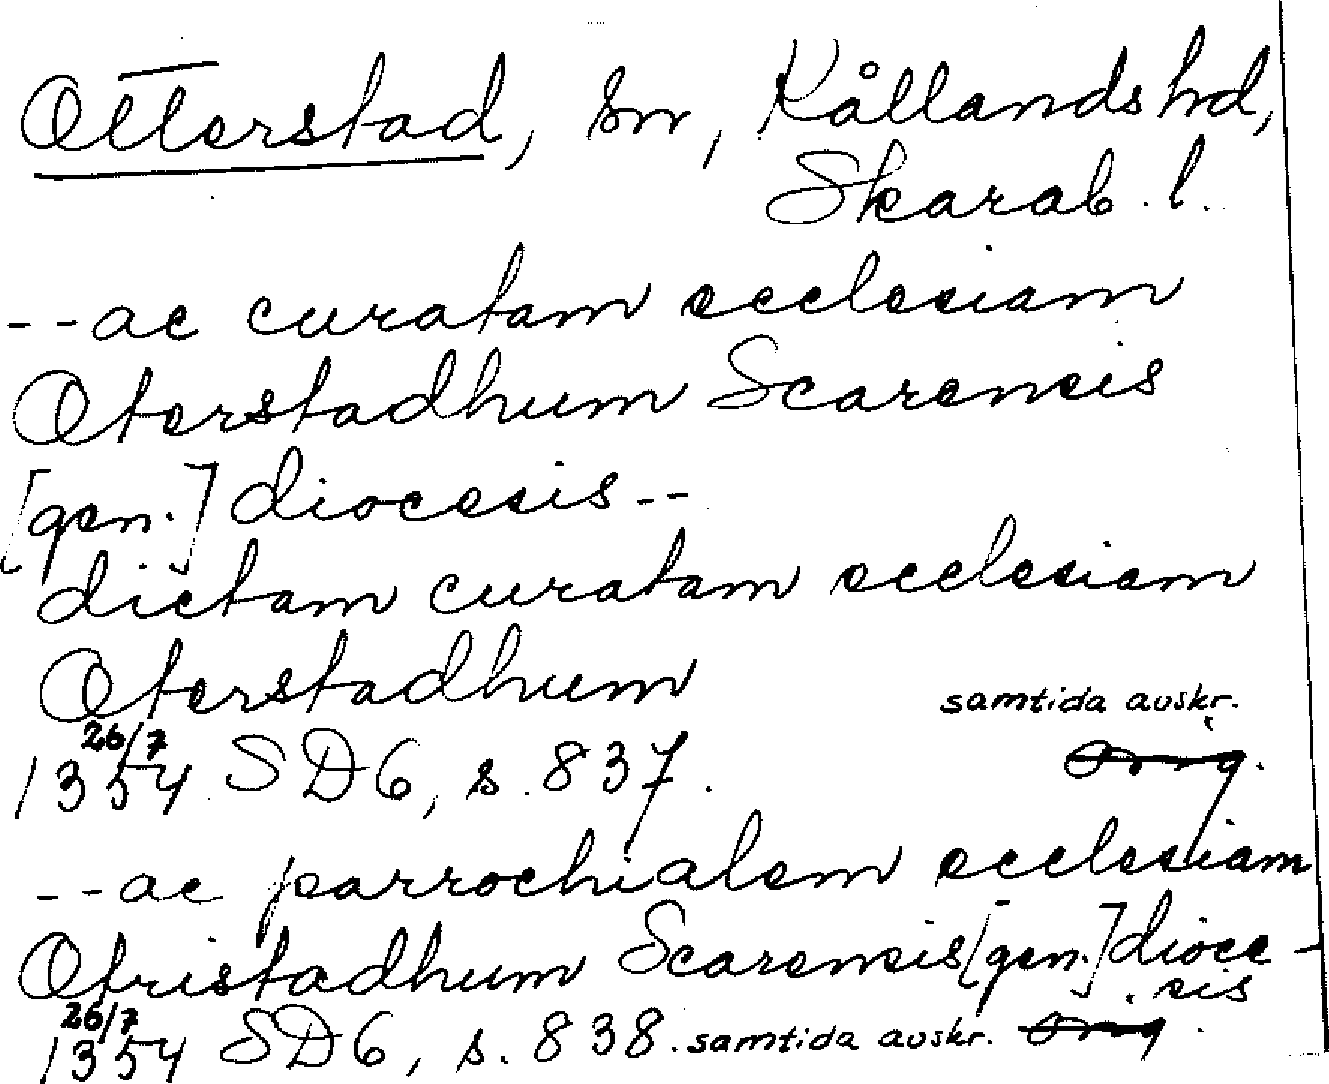 Otterstad, sn, Kållands hd,
Skarab. l.
--ac curatam ecclesiam
Oterstadhum Scarensis
[gen.] diocesis--
dictam curatam ecclesiam
Oterstadhum
samtida avskr.
26/7
1354 SD6, s. 837. Orig.
--ac parrochialem ecclesiam
Otristadhum Scarensis [gen.] dioce-
sis
26/7
1354 SD6, s. 838. samtida avskr. Orig.